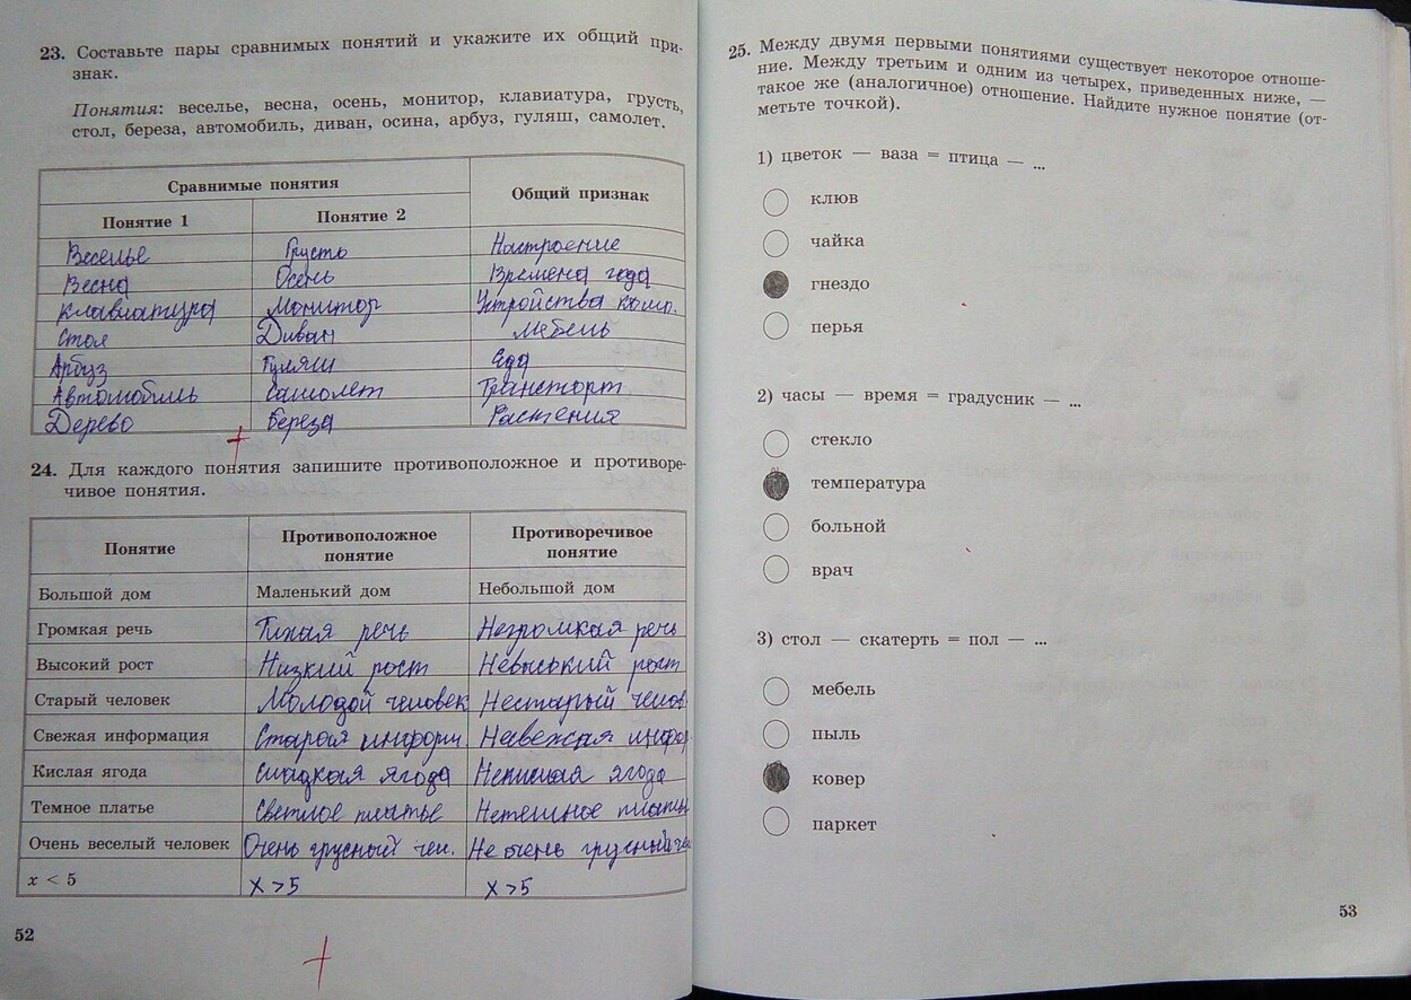 23. Составьте пары сравнимых понятий и укажите их общий при-
знак.
Понятия: веселье, весна, осень, монитор, клавиатура, грусть,
стол, береза, автомобиль, диван, осина, арбуз, гуляш, самолет.
Сравнимые понятия
Общий признак
Понятие 1 Понятие 2
Веселье Грусть Настроение
Весна Осень Времена года
Клавиатура Монитор Устройства комп.
Стол Диван Мебель
Арбуз Гуляш Еда
Автомобиль Самолет Транспорт
Дерево Береза Растения
24. Для каждого понятия запишите противоположное и противоре-
чивое понятия.
Понятие Противоположное понятие Противоречивое понятие
Большой дом Маленький дом Небольшой дом
Громкая речь Тихая речь Негромкая речь
Высокий рост Низкий рост Невысокий рост
Старый человек Молодой человек Нестарый челов.
Свежая информация Старая информ. Несвежая инфор
Кислая ягода Сладкая ягода Некислая ягода
Темное платье Светлое платье Нетемное платье
Очень веселый человек Очень грустный чел. Не очень грустный че
x < 5 X >5 X >5
52
25. Между двумя первыми понятиями существует некоторое отноше-
ние. Между третьим и одним из четырех, приведенных ниже, —
такое же (аналогичное) отношение. Найдите нужное понятие (от-
метьте точкой).
1) цветок — ваза = птица — ...
клюв
чайка
гнездо
перья
2) часы — время = градусник — ...
стекло
температура
больной
врач
3) стол — скатерть = пол — ...
мебель
пыль
ковер
паркет
53